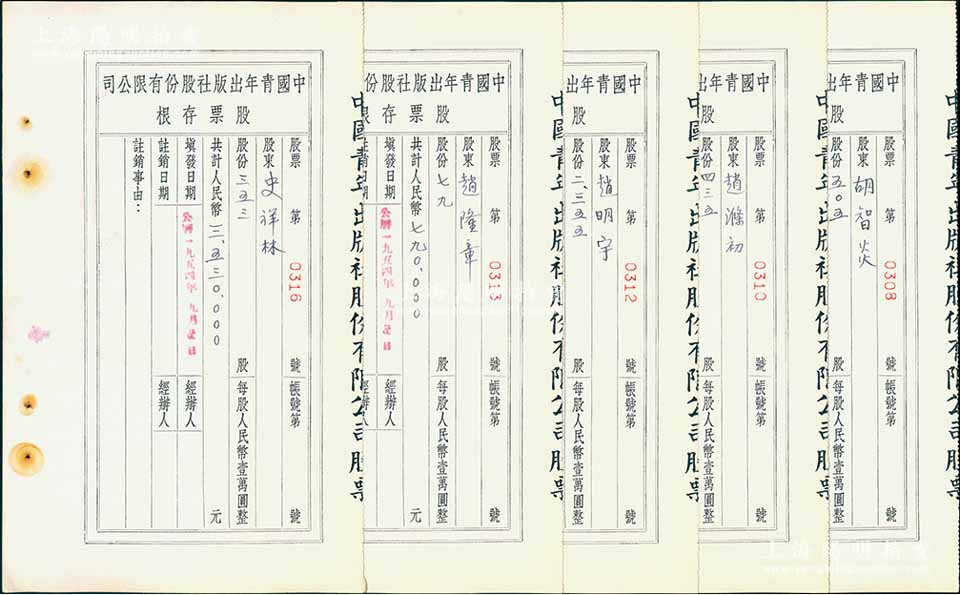 中國青年出版社股份有限公司
股票存根
股票 第 0316 號 帳號第 號
股東 史祥林
股份 三五三 股 每股人民幣壹萬圓整
共計人民幣 三、五三〇、〇〇〇 元
填發日期 公曆一九五四年 九月 日 經辦人
註銷日期 經辦人
註銷事由：
中國青年出版社股份有限公司股票
中國青年出版社股份
股票存根
股票 第 0313 號 帳號第 號
股東 趙隆章
股份 七九 股 每股人民幣壹萬圓整
共計人民幣 七九〇、〇〇〇 元
填發日期 公曆一九五四年 九月 日 經辦人
註銷日期 經辦人
中國青年出版社股份有限公司股票
中國青年出
股
股票 第 0312 號 帳號第 號
股東 趙明宇
股份 二、三五五 股 每股人民幣壹萬圓整
中國青年出版社股份有限公司股票
中國青年出
股
股票 第 0310 號 帳號第 號
股東 趙滌初
股份 四三五 股 每股人民幣壹萬圓整
中國青年出版社股份有限公司股票
中國青年出
股
股票 第 0308 號 帳號第 號
股東 胡智炎
股份 五〇五 股 每股人民幣壹萬圓整
中國青年出版社股份有限公司股票